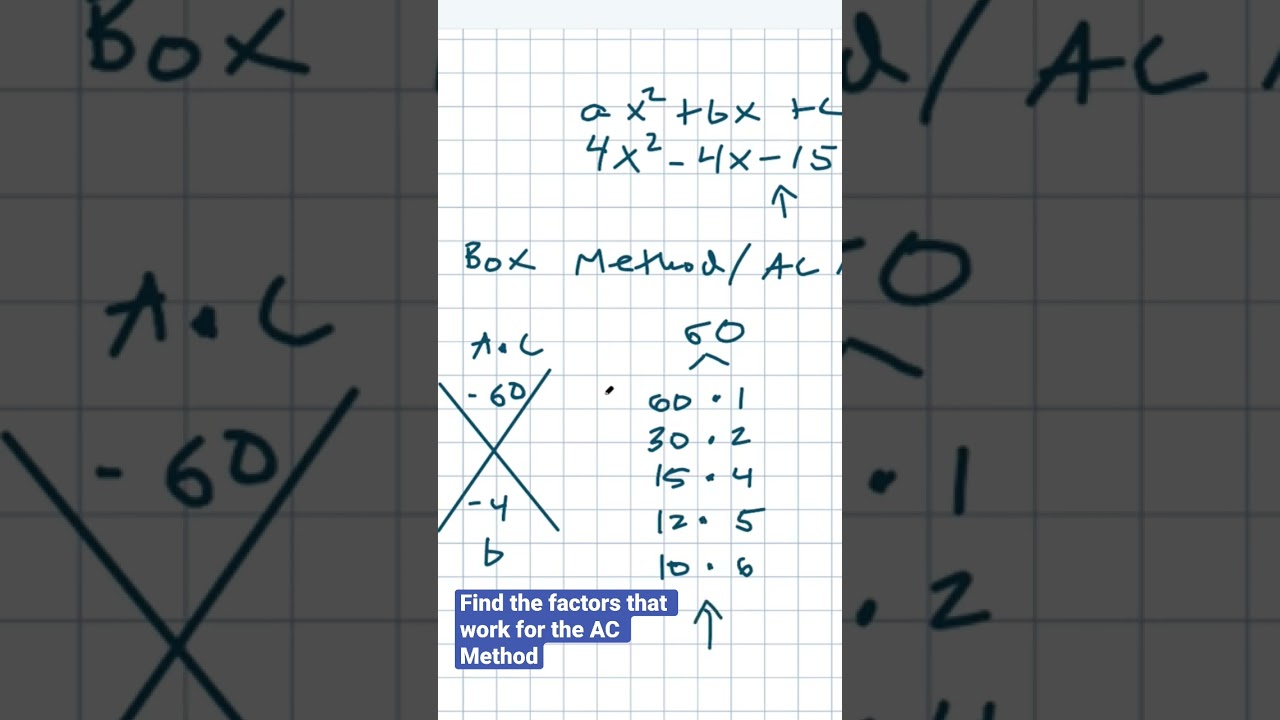 ax² + bx + c
4x² - 4x - 15
↑
Box Method / AC
A.C
60
- 60
60 · 1
30 · 2
15 · 4
12 · 5
10 · 6
- 4
b
↑
Find the factors that
work for the AC
Method